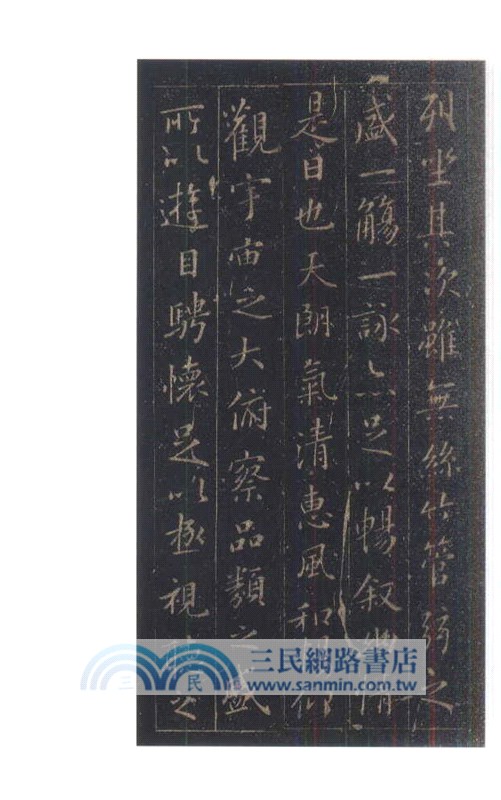 列坐其次雖無絲竹管弦之
盛一觴一詠亦足以暢叙幽情
是日也天朗氣清惠風和暢仰
觀宇宙之大俯察品類之盛
所以遊目騁懷足以極視聽之
三民網路書店
www.sanmin.com.tw
三
民